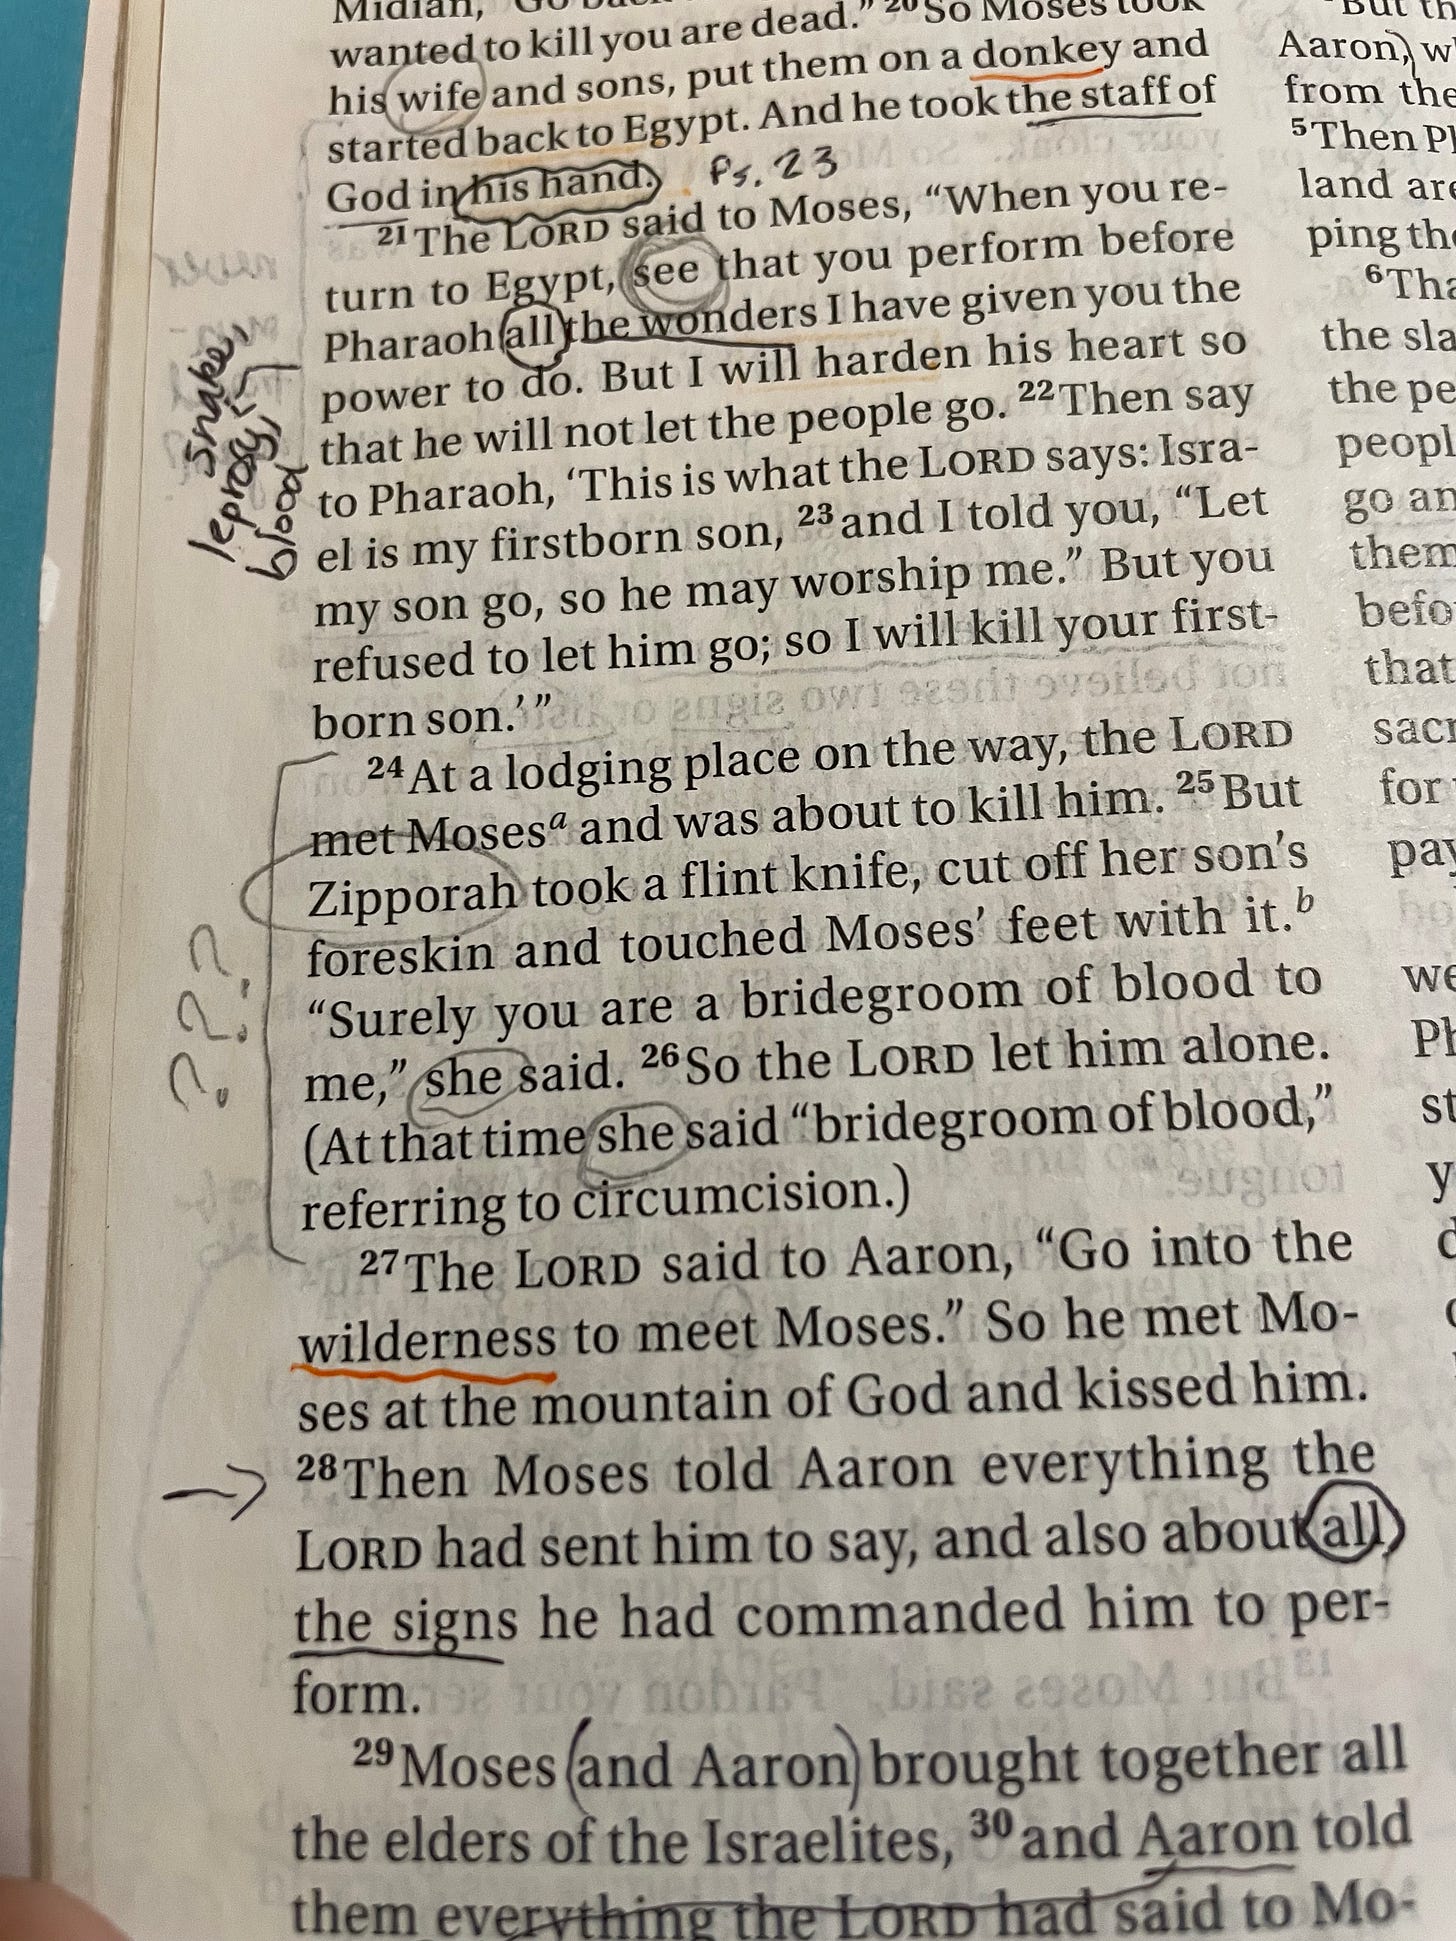 Midian, "Go back
wanted to kill you are dead." 20 So Moses took
his wife and sons, put them on a donkey and
started back to Egypt. And he took the staff of
God in his hand. Ps. 23
21 The LORD said to Moses, "When you re-
turn to Egypt, see that you perform before
Pharaoh all the wonders I have given you the
power to do. But I will harden his heart so
that he will not let the people go. 22 Then say
to Pharaoh, 'This is what the LORD says: Isra-
el is my firstborn son, 23 and I told you, "Let
my son go, so he may worship me." But you
refused to let him go; so I will kill your first-
born son.'"
24 At a lodging place on the way, the LORD
met Moses a and was about to kill him. 25 But
Zipporah took a flint knife, cut off her son's
foreskin and touched Moses' feet with it. b
"Surely you are a bridegroom of blood to
me," she said. 26 So the LORD let him alone.
(At that time she said "bridegroom of blood,"
referring to circumcision.)
27 The LORD said to Aaron, "Go into the
wilderness to meet Moses." So he met Mo-
ses at the mountain of God and kissed him.
28 Then Moses told Aaron everything the
LORD had sent him to say, and also about all
the signs he had commanded him to per-
form.
29 Moses (and Aaron) brought together all
the elders of the Israelites, 30 and Aaron told
them everything the LORD had said to Mo-
snake,
leprosy,
blood
???
Aaron,
from the
5 Then
land
ping
6
the
the
go
for